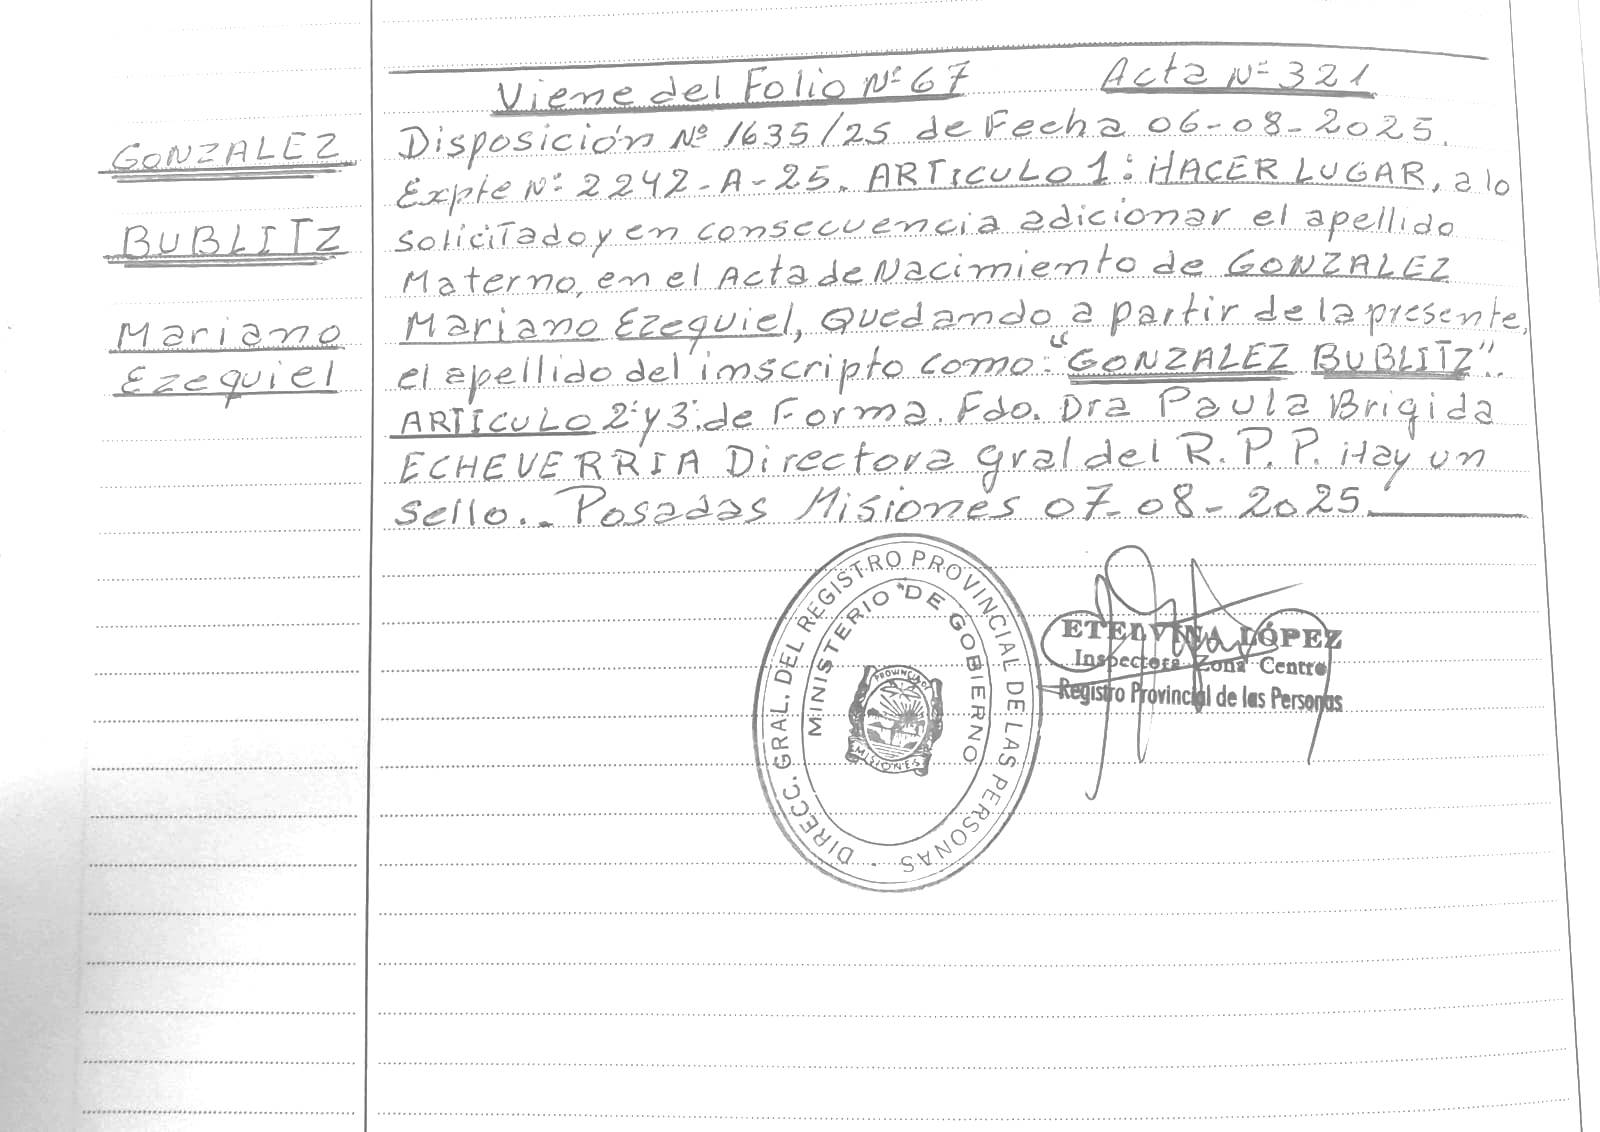 Viene del Folio Nº 67 Acta Nº 321
GONZALEZ
BUBLITZ
Mariano
Ezequiel
Disposición Nº 1635/25 de Fecha 06-08-2025.
Expte Nº 2242-A-25. ARTICULO 1: HACER LUGAR, a lo
solicitado y en consecuencia adicionar el apellido
Materno, en el Acta de Nacimiento de GONZALEZ
Mariano Ezequiel, Quedando a partir de la presente,
el apellido del inscripto como: "GONZALEZ BUBLITZ".
ARTICULO 2º y 3º: de Forma. Fdo. Dra Paula Brigida
ECHEVERRIA Directora Gral del R.P.P. Hay un
sello.. Posadas Misiones 07-08-2025.
DIRECC. GRAL. DEL REGISTRO PROVINCIAL DE LAS PERSONAS
MINISTERIO DE GOBIERNO
PROVINCIA DE
MISIONES
ETELVINA LÓPEZ
Inspectora Zona Centro
Registro Provincial de las Personas